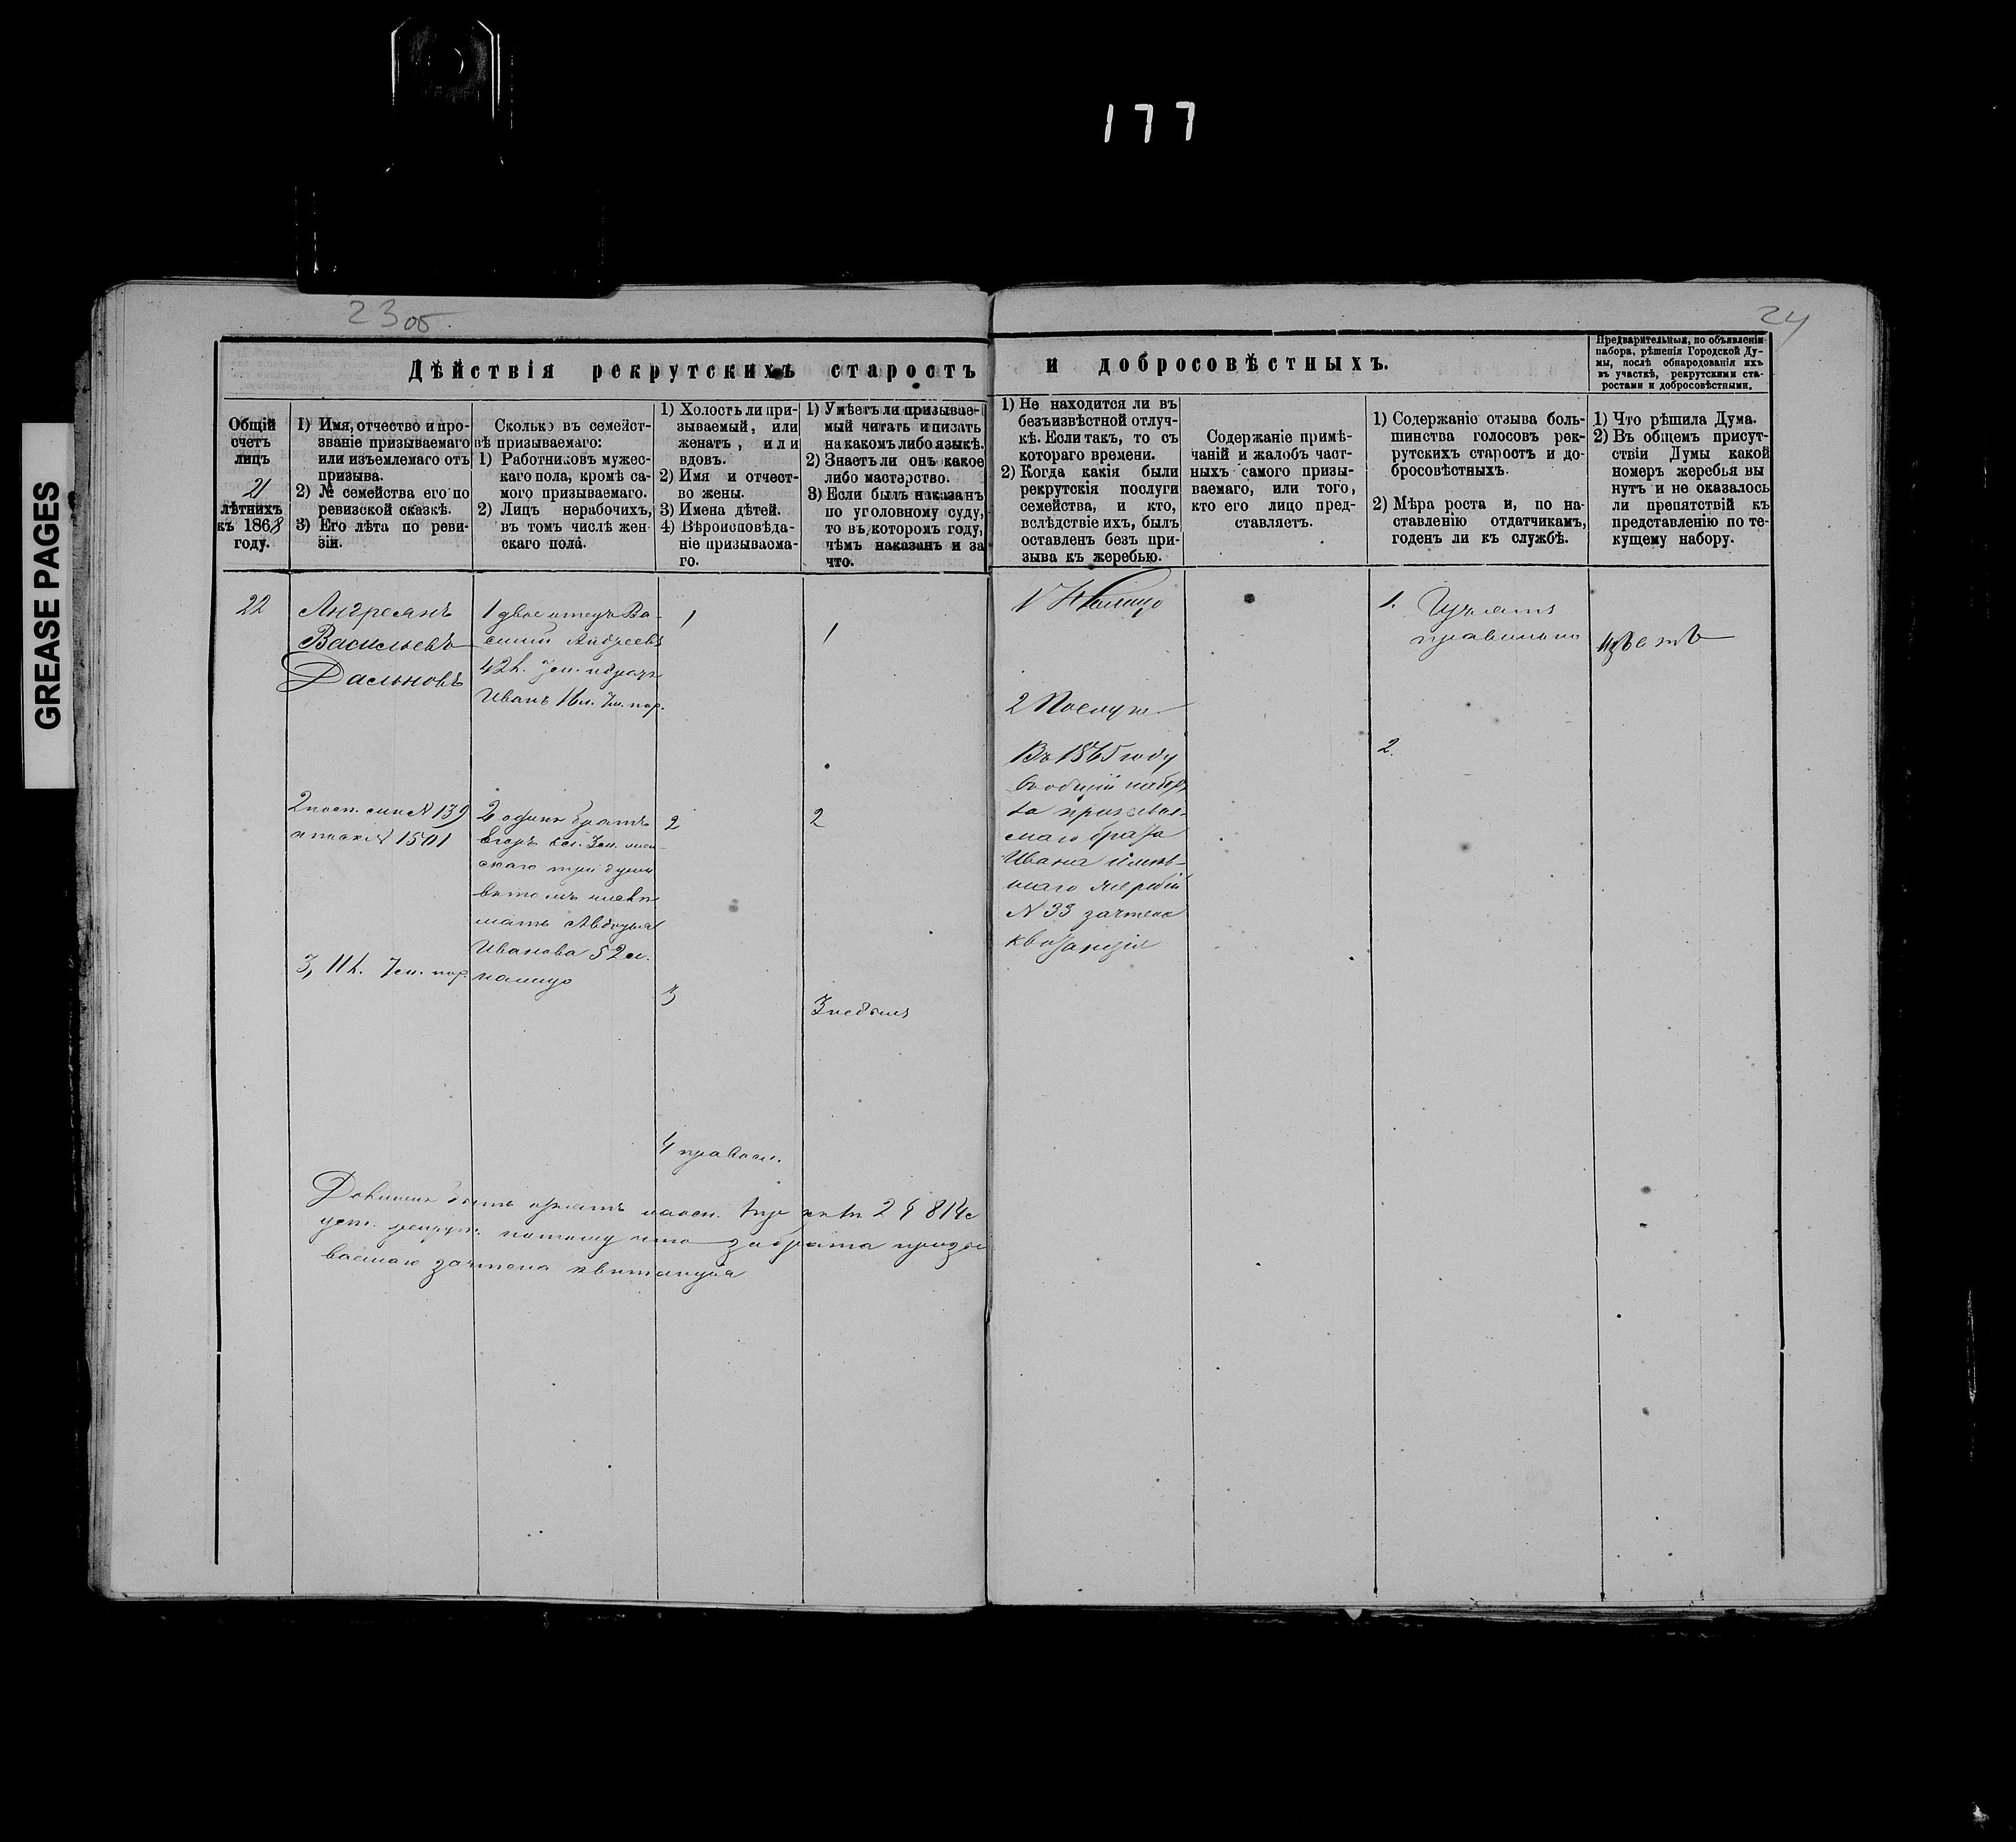 177
GREASE PAGES
23 об
24
Дѣйствія рекрутскихъ старостъ и добросовѣстныхъ.
Предварительныя, по объявленіи
набора, рѣшенія Городской Ду-
мы, послѣ обнародованія ихъ
въ участкѣ, рекрутскими ста-
ростами и добросовѣстными.
Общій
счетъ
лицъ
21
лѣтнихъ
къ 1868
году.
1) Имя, отчество и про-
званіе призываемаго
или изъемлемаго отъ
призыва.
2) № семейства его по
ревизской сказкѣ.
3) Его лѣта по реви-
зіи.
Сколько въ семейст-
вѣ призываемаго:
1) Работниковъ мужес-
каго пола, кромѣ са-
мого призываемаго.
2) Лицъ нерабочихъ,
въ томъ числѣ жен
скаго пола.
1) Холостъ ли при-
зываемый, или
женатъ, или
вдовъ.
2) Имя и отчест-
во жены.
3) Имена дѣтей.
4) Вѣроисповѣда-
ніе призываема-
го.
1) Умѣетъ ли призывае-
мый читать и писать
на какомъ либо языкѣ.
2) Знаетъ ли онъ какое
либо мастерство.
3) Если былъ наказанъ
по уголовному суду,
то въ которомъ году,
чѣмъ наказанъ и за
что.
1) Не находится ли въ
безъизвѣстной отлуч-
кѣ. Если такъ, то съ
котораго времени.
2) Когда какія были
рекрутскія послуги
семейства, и кто,
вслѣдствіе ихъ, былъ
оставленъ безъ при-
зыва къ жеребью.
Содержаніе примѣ-
чаній и жалобъ част-
ныхъ самого призы-
ваемаго, или того,
кто его лицо пред-
ставляетъ.
1) Содержаніе отзыва боль-
шинства голосовъ рек-
рутскихъ старостъ и до-
бросовѣстныхъ.
2) Мѣра роста и, по на-
ставленію отдатчикамъ,
годенъ ли къ службѣ.
1) Что рѣшила Дума.
2) Въ общемъ присут-
ствіи Думы какой
номеръ жеребья вы
нутъ и не оказалось
ли препятствій къ
представленію по те-
кущему набору.
22
Васильевъ
Дальновъ
1 двое отецъ Ва-
силій Андреевъ
42 л.
Иванъ 16 л.
2 № 139
№ 1501
2 одинъ братъ
Егоръ
мать Авдотья
Иванова 52 л.
налицо
3, 11 л.
1
2
3
4 правосл.
1
2
3 небылъ
1 Налицо
2 Послуж
Въ 1865 году
въ общій набор
за призывае-
маго брата
Ивана имѣв-
шаго жеребій
№ 33 зачтена
квитанція
1. Изъять
правильно
2.
Изъять
Долженъ быть изъятъ на осн. 2 § 814 с
уст. рекрут. потому что за брата призы
ваемаго зачтена квитанція